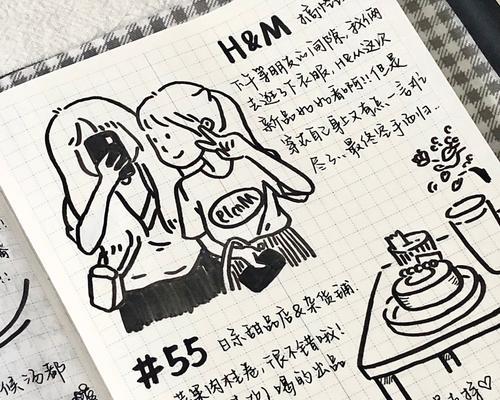 H&M
下午等朋友的间隙，我们俩
去逛了下衣服，H&M这次
新品好好看啊!!但是
穿在自己身上又有点一言难
尽了、最终空手而归…
MmlA
#55
日系甜品店&杂货铺.
苹果肉桂卷，很不错哦!
喝的出品
候汤都